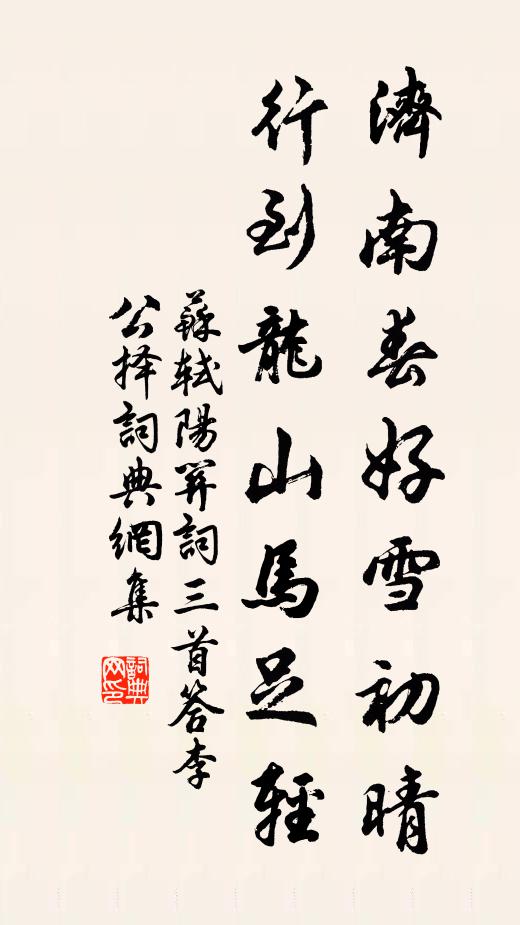 濟南春好雪初晴
行到龍山馬足輕
蘇軾陽關詞三首答李
公择詞典網集
詞典网印